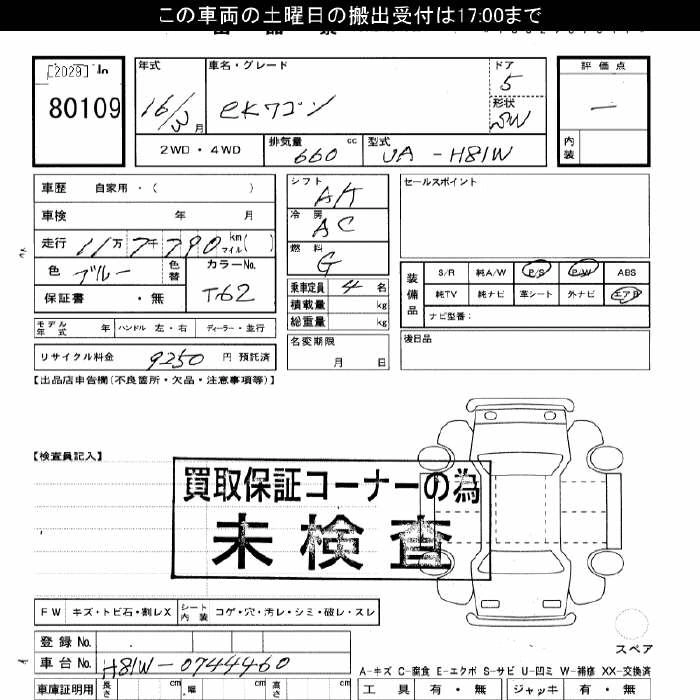 この車両の土曜日の搬出受付は17:00まで
[2029]
80109
年式 車名・グレード ドア 評価点
16/3月 eKワゴン 5
形状
SW
2WD・4WD 排気量 660 cc 型式 UA-H81W 内装
車歴 自家用・( )
車検 年 月
走行 11万7千790 km マイル( )
色 ブルー 色替 カラーNo. T62
保証書 ・無
モデル年式 年 ハンドル 左・右 ディーラー・並行
リサイクル料金 9250 円 預託済
シフト AT
冷房 AC
燃料 G
乗車定員 4 名
積載量 kg
総重量 kg
名変期限
月 日
セールスポイント
装備品 S/R 純A/W P/S P/W ABS
純TV 純ナビ 革シート 外ナビ エアB
ナビ型番:
後日品
【出品店申告欄(不良箇所・欠品・注意事項等)】
【検査員記入】
買取保証コーナーの為
未検査
FW キズ・トビ石・割レX シート内装 コゲ・穴・汚レ・シミ・破レ・スレ
スペア
登録No.
車台No. H81W-0744460
A-キズ C-腐食 E-エクボ S-サビ U-凹ミ W-補修 XX-交換済
車庫証明用 長さ cm 幅 cm 高さ cm 工具 有・無 ジャッキ 有・無